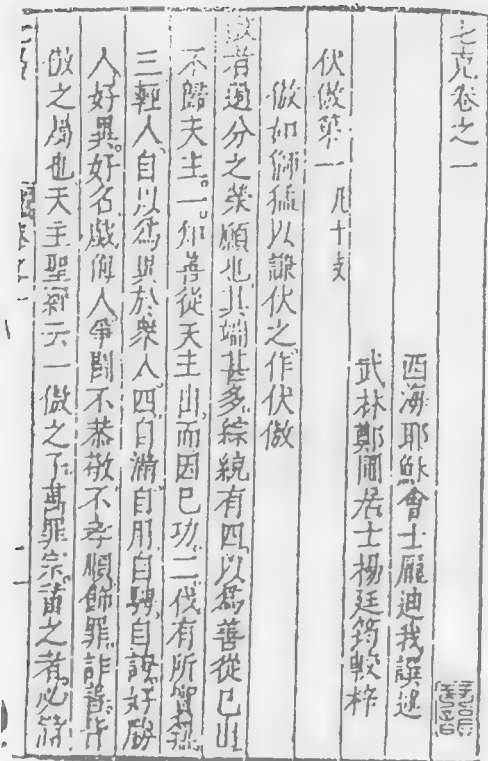 七克卷之一
西海耶穌會士龐迪我譔述
武林鄭圃居士楊廷筠較梓
伏傲第一 凡十支
傲如獅猛以謙伏之作伏傲
傲者過分之榮願也其端甚多綜統有四以爲善從己出
不歸天主。一。知善從天主出,而因己功。二伐有所
三輕人自以爲異於衆人。四。自滿自用自好勝
人好異。好名戲侮人爭鬪不恭敬不孝順飾罪詐善皆
傲之屬也天主聖經云一傲之子萬罪宗蓄之者必